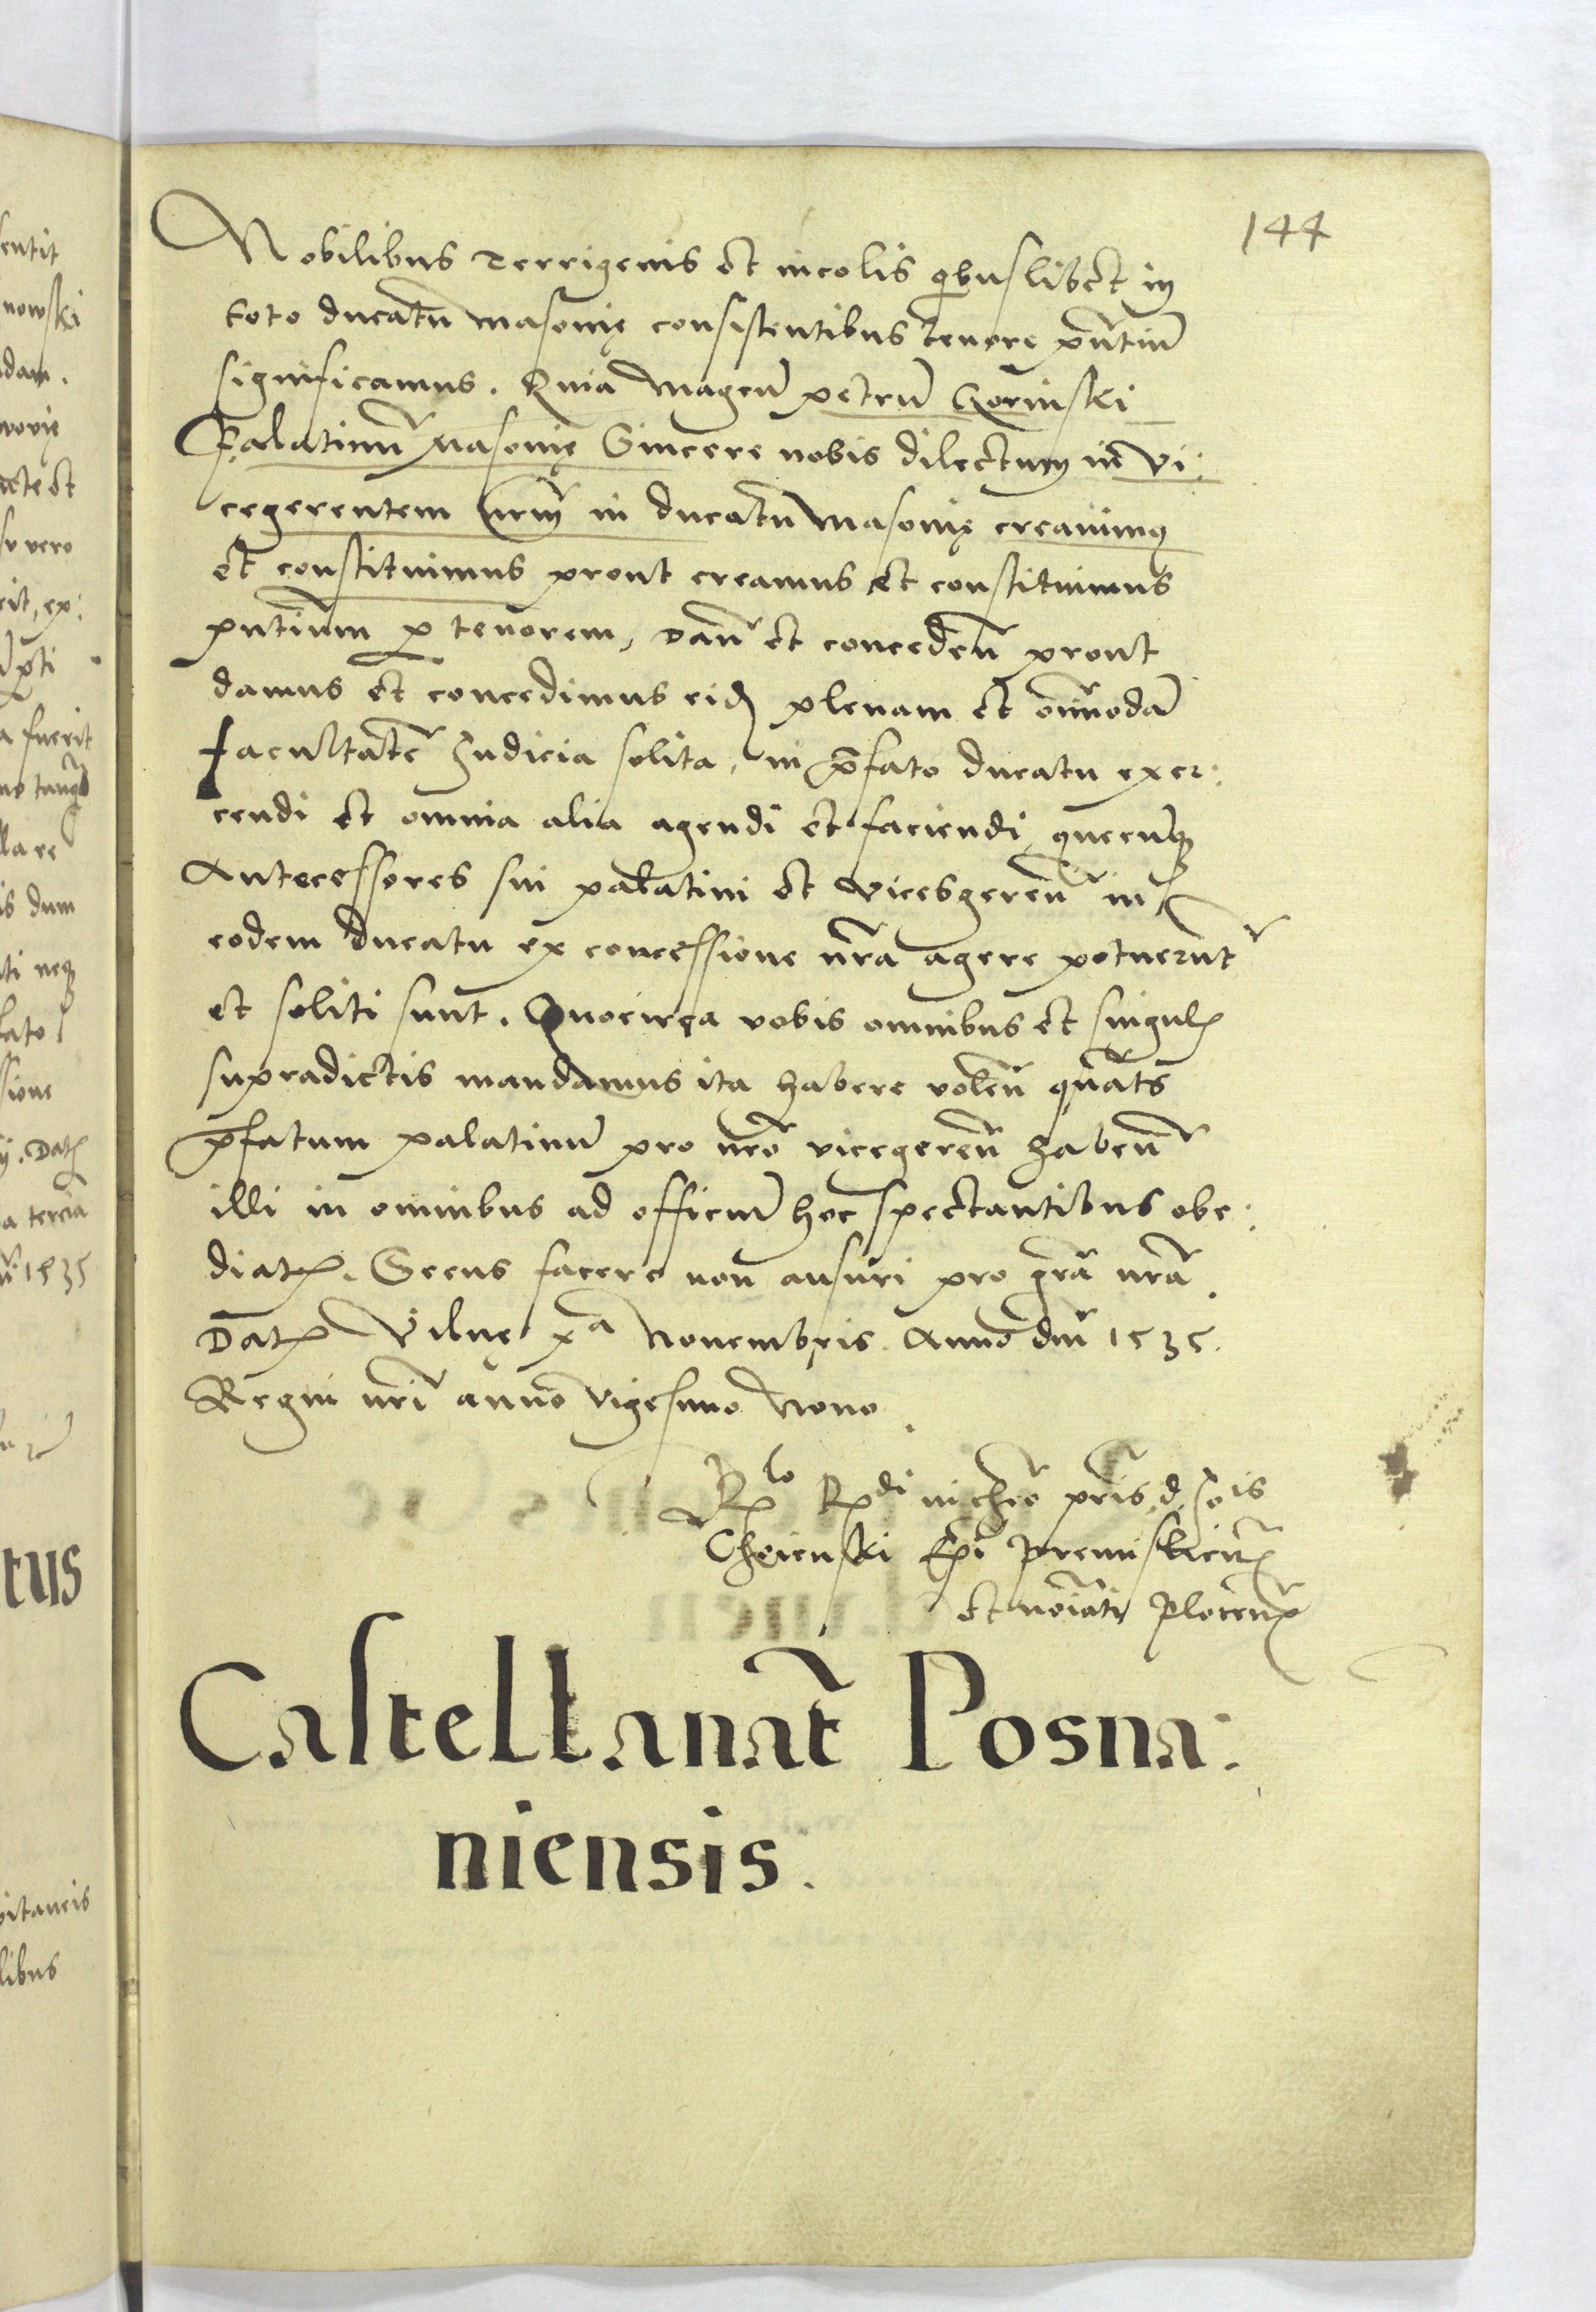 144
Nobilibus Terrigenis et incolis qbuslibet in
toto ducatu Masovię consistentibus tenore pñtiũ
significamus. Quia Magcũ petrũ Gorinski
Palatinũ Masovię Sincere nobis dilectum in vi:
cegerentem nrm̃ in ducatu Masovię creavimꝯ
et constituimus prout creamus et constituimus
pñtium ꝑ tenorem, Dañ et concedeñ prout
damus et concedimus eidꝫ plenam et om̃modã
facultatẽ Iudicia solita, in p̃fato ducatu exer:
cendi et omnia alia agendi et faciendi quecunqꝫ
Antecessores sui palatini et vicesgereñ in
eodem ducatu ex concessione nr̃a agere potuerunt
et soliti sunt. Quocirca vobis omnibus et singulꝭ
supradictis mandamus ita habere voleñ quat̃s
p̃fatum palatinũ pro nr̃o vicegereñ habeñ
illi in omnibus ad officiũ hoc spectantibus obe:
diatꝭ. Secus facere non ausuri pro gr̃a nr̃a.
Datꝭ Vilnę xᵃ Novembris. Anno dm̃ 1535.
Regni nr̃i anno vigesimo Nono.
Rlo Rdi in chr̃o pr̃is d. Jois
Choienski Ep̃i Premislieñꝭ
et noĩati Ploceñꝭ
Castellanat̃ Posna:
niensis.
entit
nowski
dam.
vero
rit, ex:
a fuerit
lla re
is dum
ti neqꝫ
sione
. Datꝭ
a tercia
1535
tus
vitaneis
libus